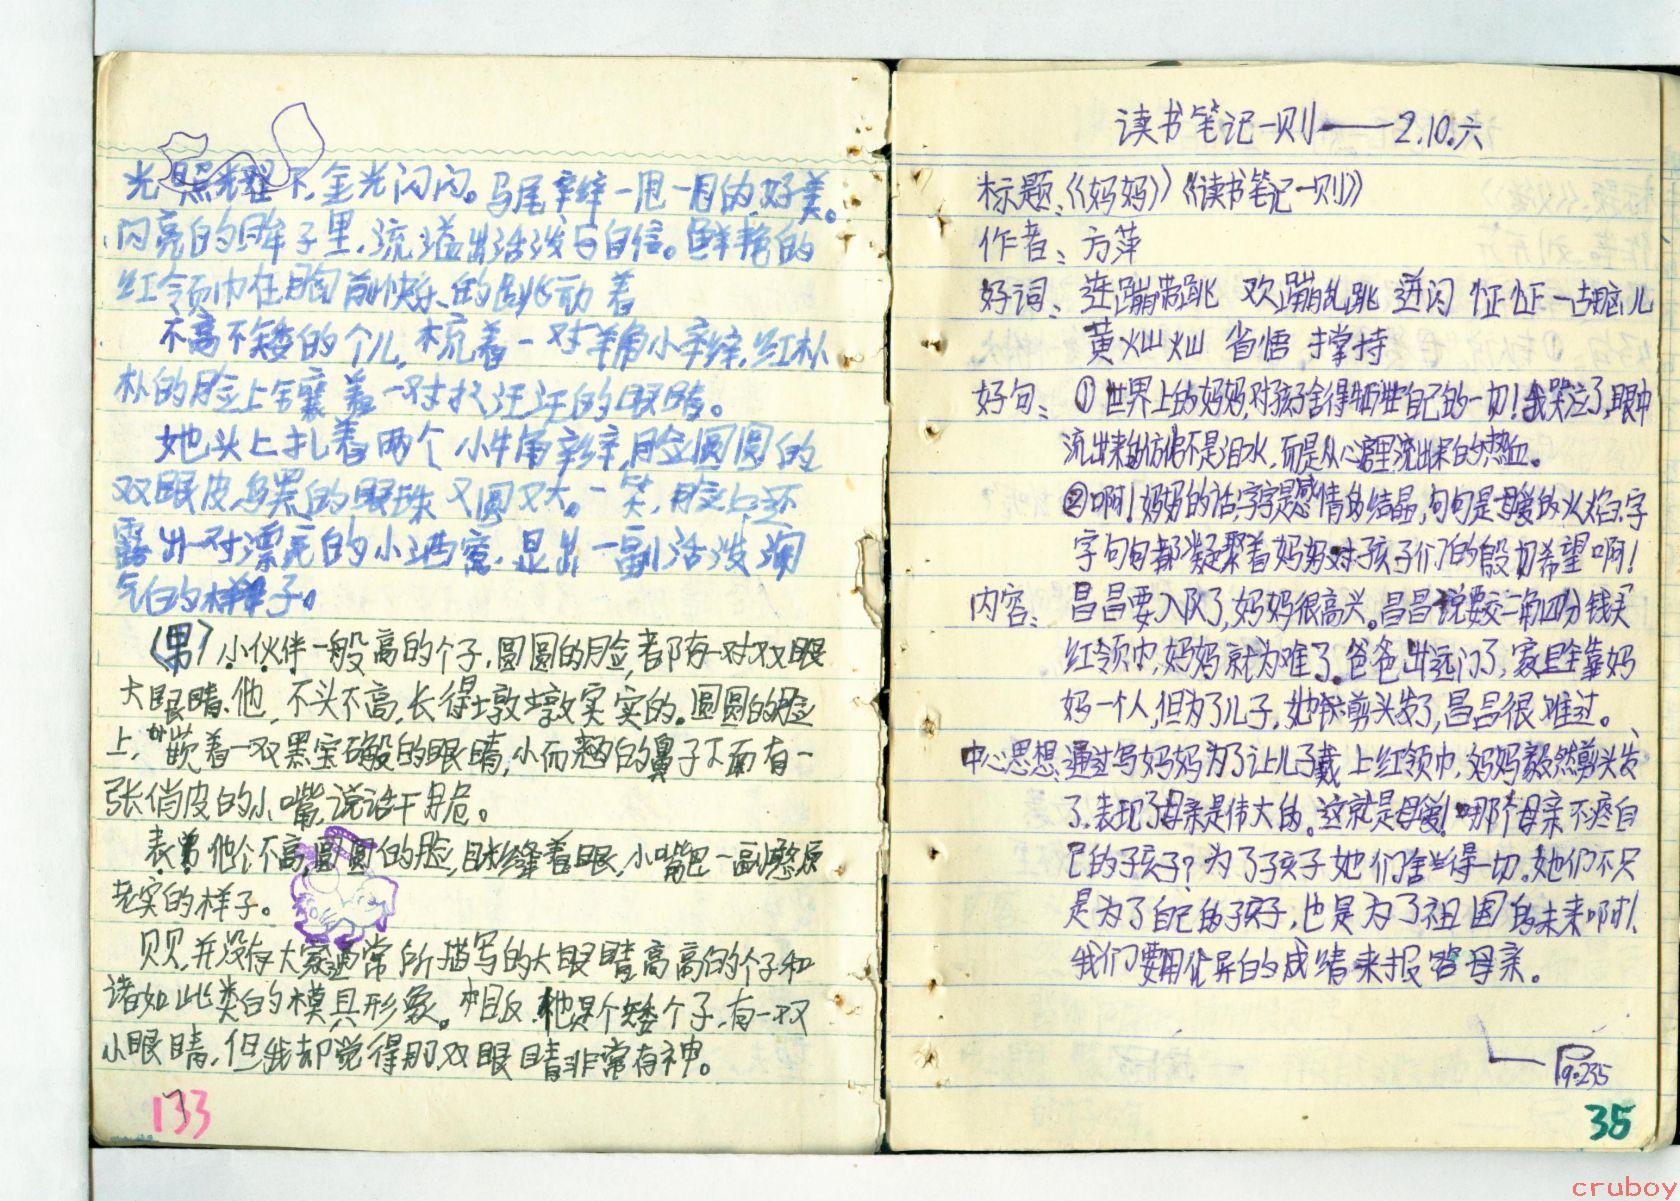 光照耀下,金光闪闪。马尾辫辫一甩一甩的,好美。
闪亮的眸子里,流溢出活泼与自信。鲜艳的
红领巾在胸前快乐的跳动着
不高不矮的个儿,梳着一对羊角小辫辫,红朴
朴的脸上镶着一对水汪汪的眼睛。
她头上扎着两个小牛角辫辫,脸圆圆的
双眼皮,乌黑的眼珠又圆又大。一笑,脸上还
露出一对漂亮的小酒窝,显出一副活泼淘
气的样子。
(男)小伙伴一般高的个子,圆圆的脸,都有一对双眼
大眼睛、他,不头不高,长得墩墩实实的。圆圆的脸
上,嵌着一双黑宝石般的眼睛,小而翘的鼻子下面有一
张俏皮的小嘴,说话干脆。
表弟他个不高,圆圆的脸,眯缝着眼,小嘴巴一副憨厚
老实的样子。
贝贝,并没有大家通常所描写的大眼睛,高高的个子和
诸如此类的模具形象。相反,他是个矮个子,有一双
小眼睛,但我却觉得那双眼睛非常有神。
133
读书笔记一则——2.10.六
标题:《妈妈》《读书笔记一则》
作者:方萍
好词:连蹦带跳 欢蹦乱跳 迸闪 怔怔 一古脑儿
黄灿灿 省悟 撑持
好句:①世界上的妈妈,对孩子舍得牺牲自己的一切!我哭泣了,眼中
流出来的仿佛不是泪水,而是从心窝里流出来的热血。
②啊!妈妈的话,字字是感情的结晶,句句是母爱的火焰,字
字句句都凝聚着妈妈对孩子们的殷切希望啊!
内容:昌昌要入队了,妈妈很高兴。昌昌说要交二角四分钱买
红领巾,妈妈就为难了。爸爸出远门了,家里全靠妈
妈一个人,但为了儿子,她剪头发了,昌昌很难过。
中心思想:通过写妈妈为了让儿子戴上红领巾,妈妈毅然剪头发
了,表现了母亲是伟大的。这就是母爱!哪个母亲不疼自
己的孩子?为了孩子她们舍得一切。她们不只
是为了自己的孩子,也是为了祖国的未来啊!
我们要用优异的成绩来报答母亲。
P9.235
35
cruboy